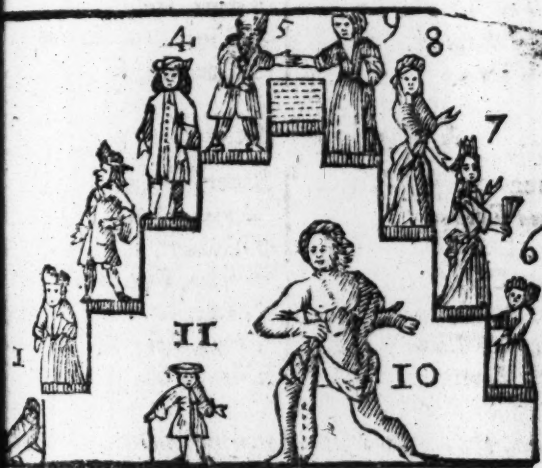 5 9
4 8
7
6
1 11
10